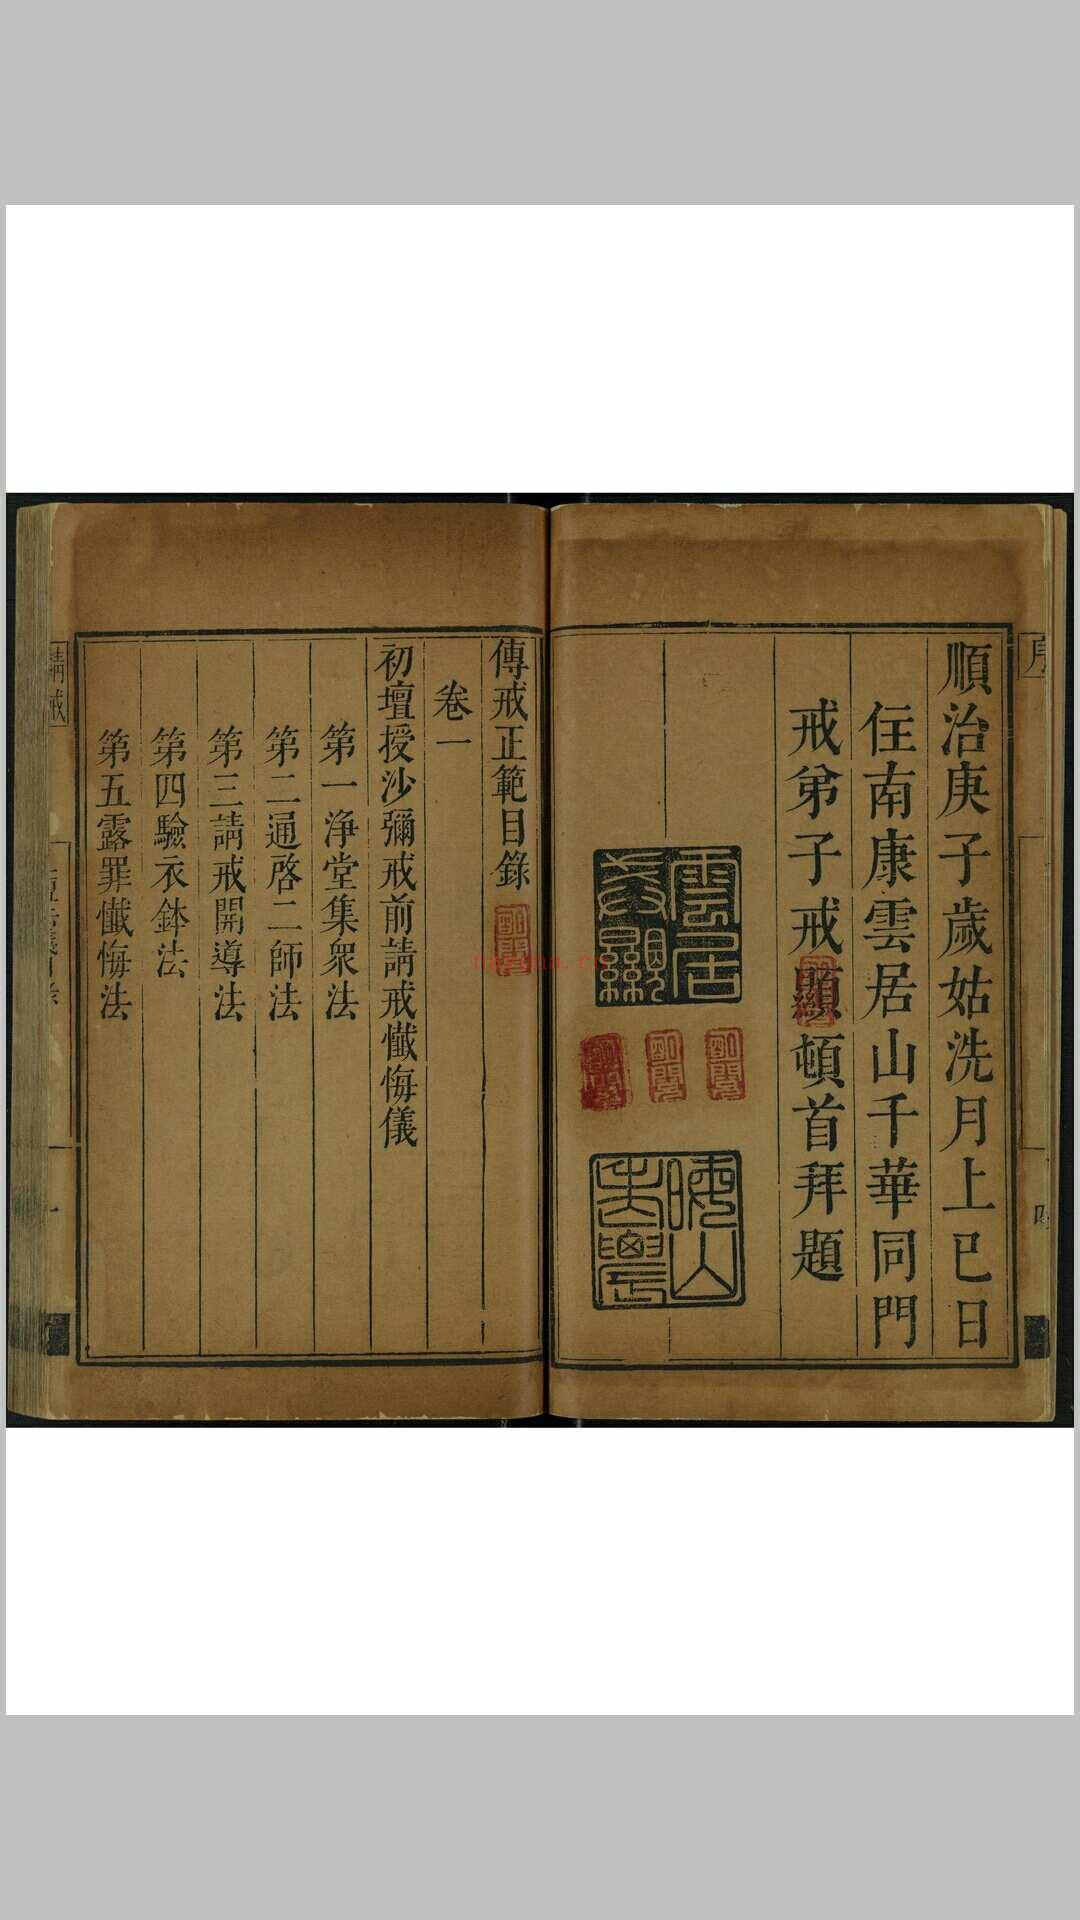 順治庚子歲姑洗月上巳日
住南康雲居山千華同門
戒弟子戒顯頓首拜題
雲居
戒顯
晦山
傳戒正範目錄
卷一
初壇授沙彌戒前請戒懺悔儀
第一淨堂集衆法
第二通啓二師法
第三請戒開導法
第四驗衣鉢法
第五露罪懺悔法
請戒